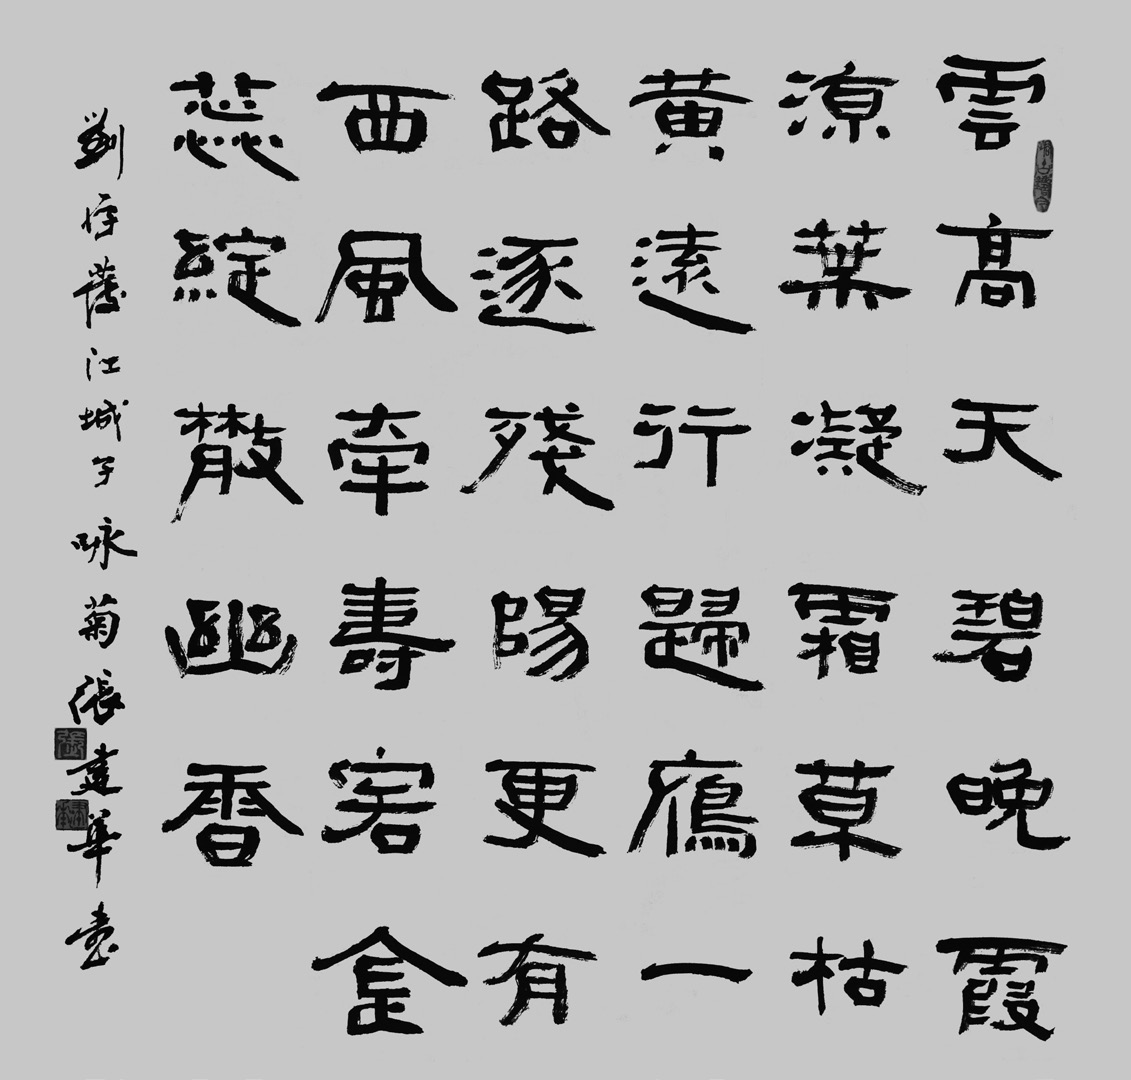 雲高天碧晚霞
涼葉凝霜草枯
黃遠行歸鴈一
路逐殘陽更有
西風牽壽客金
蕊綻散幽香
劉江城子咏菊張建華書